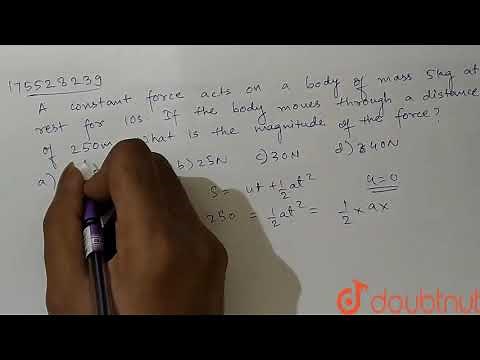 175523239
A constant force acts on a body of mass 5kg at
rest for 10s If the body moves through a distance
of 250m what is the magnitude of the force?
a) b) 25N c) 30N d) 40N
S = ut + 1/2 at² u = 0
250 = 1/2 at² = 1/2 × a ×
doubtnut